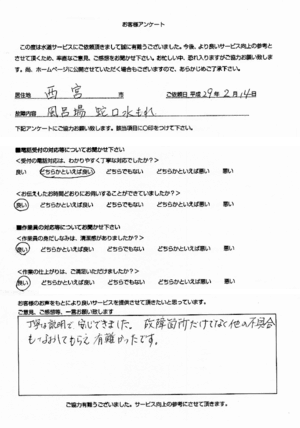 お客様アンケート
この度は水道サービスにご依頼頂きまして誠に有難うございました。今後、より良いサービス向上の参考と
させて頂くため、率直なご意見、ご感想をお聞かせ下さい。お忙しい中、恐れ入りますがご協力お願い致しま
す。尚、ホームページに公開させていただく場合もございますので、あらかじめご了承下さい。
居住地 西宮 市 ご依頼日 平成29年2月14日
故障内容 風呂場 蛇口水もれ
下記アンケートにご協力お願い致します。該当項目に○印をつけて下さい。
■電話受付の対応等についてお聞かせ下さい
<受付の電話対応は、わかりやすく丁寧な対応でしたか?>
良い どちらかといえば良い どちらでもない どちらかといえば悪い 悪い
<お伝えしたお時間どおりにお伺いすることができていましたか?>
良い どちらかといえば良い どちらでもない どちらかといえば悪い 悪い
■作業員の対応等についてお聞かせ下さい
<作業員の身だしなみは、清潔感がありましたか?>
良い どちらかといえば良い どちらでもない どちらかといえば悪い 悪い
<作業の仕上がりは、ご満足いただけましたか?>
良い どちらかといえば良い どちらでもない どちらかといえば悪い 悪い
お客様のお声をもとにより良いサービスを提供させて頂きたいと思っています。
ご意見、ご感想等、一言お願い致します
丁寧な説明で安心できました。故障箇所だけでなく他の不具合
もなおしてもらえ有難かったです。
ご協力有難うございました。サービス向上の参考にさせて頂きます。